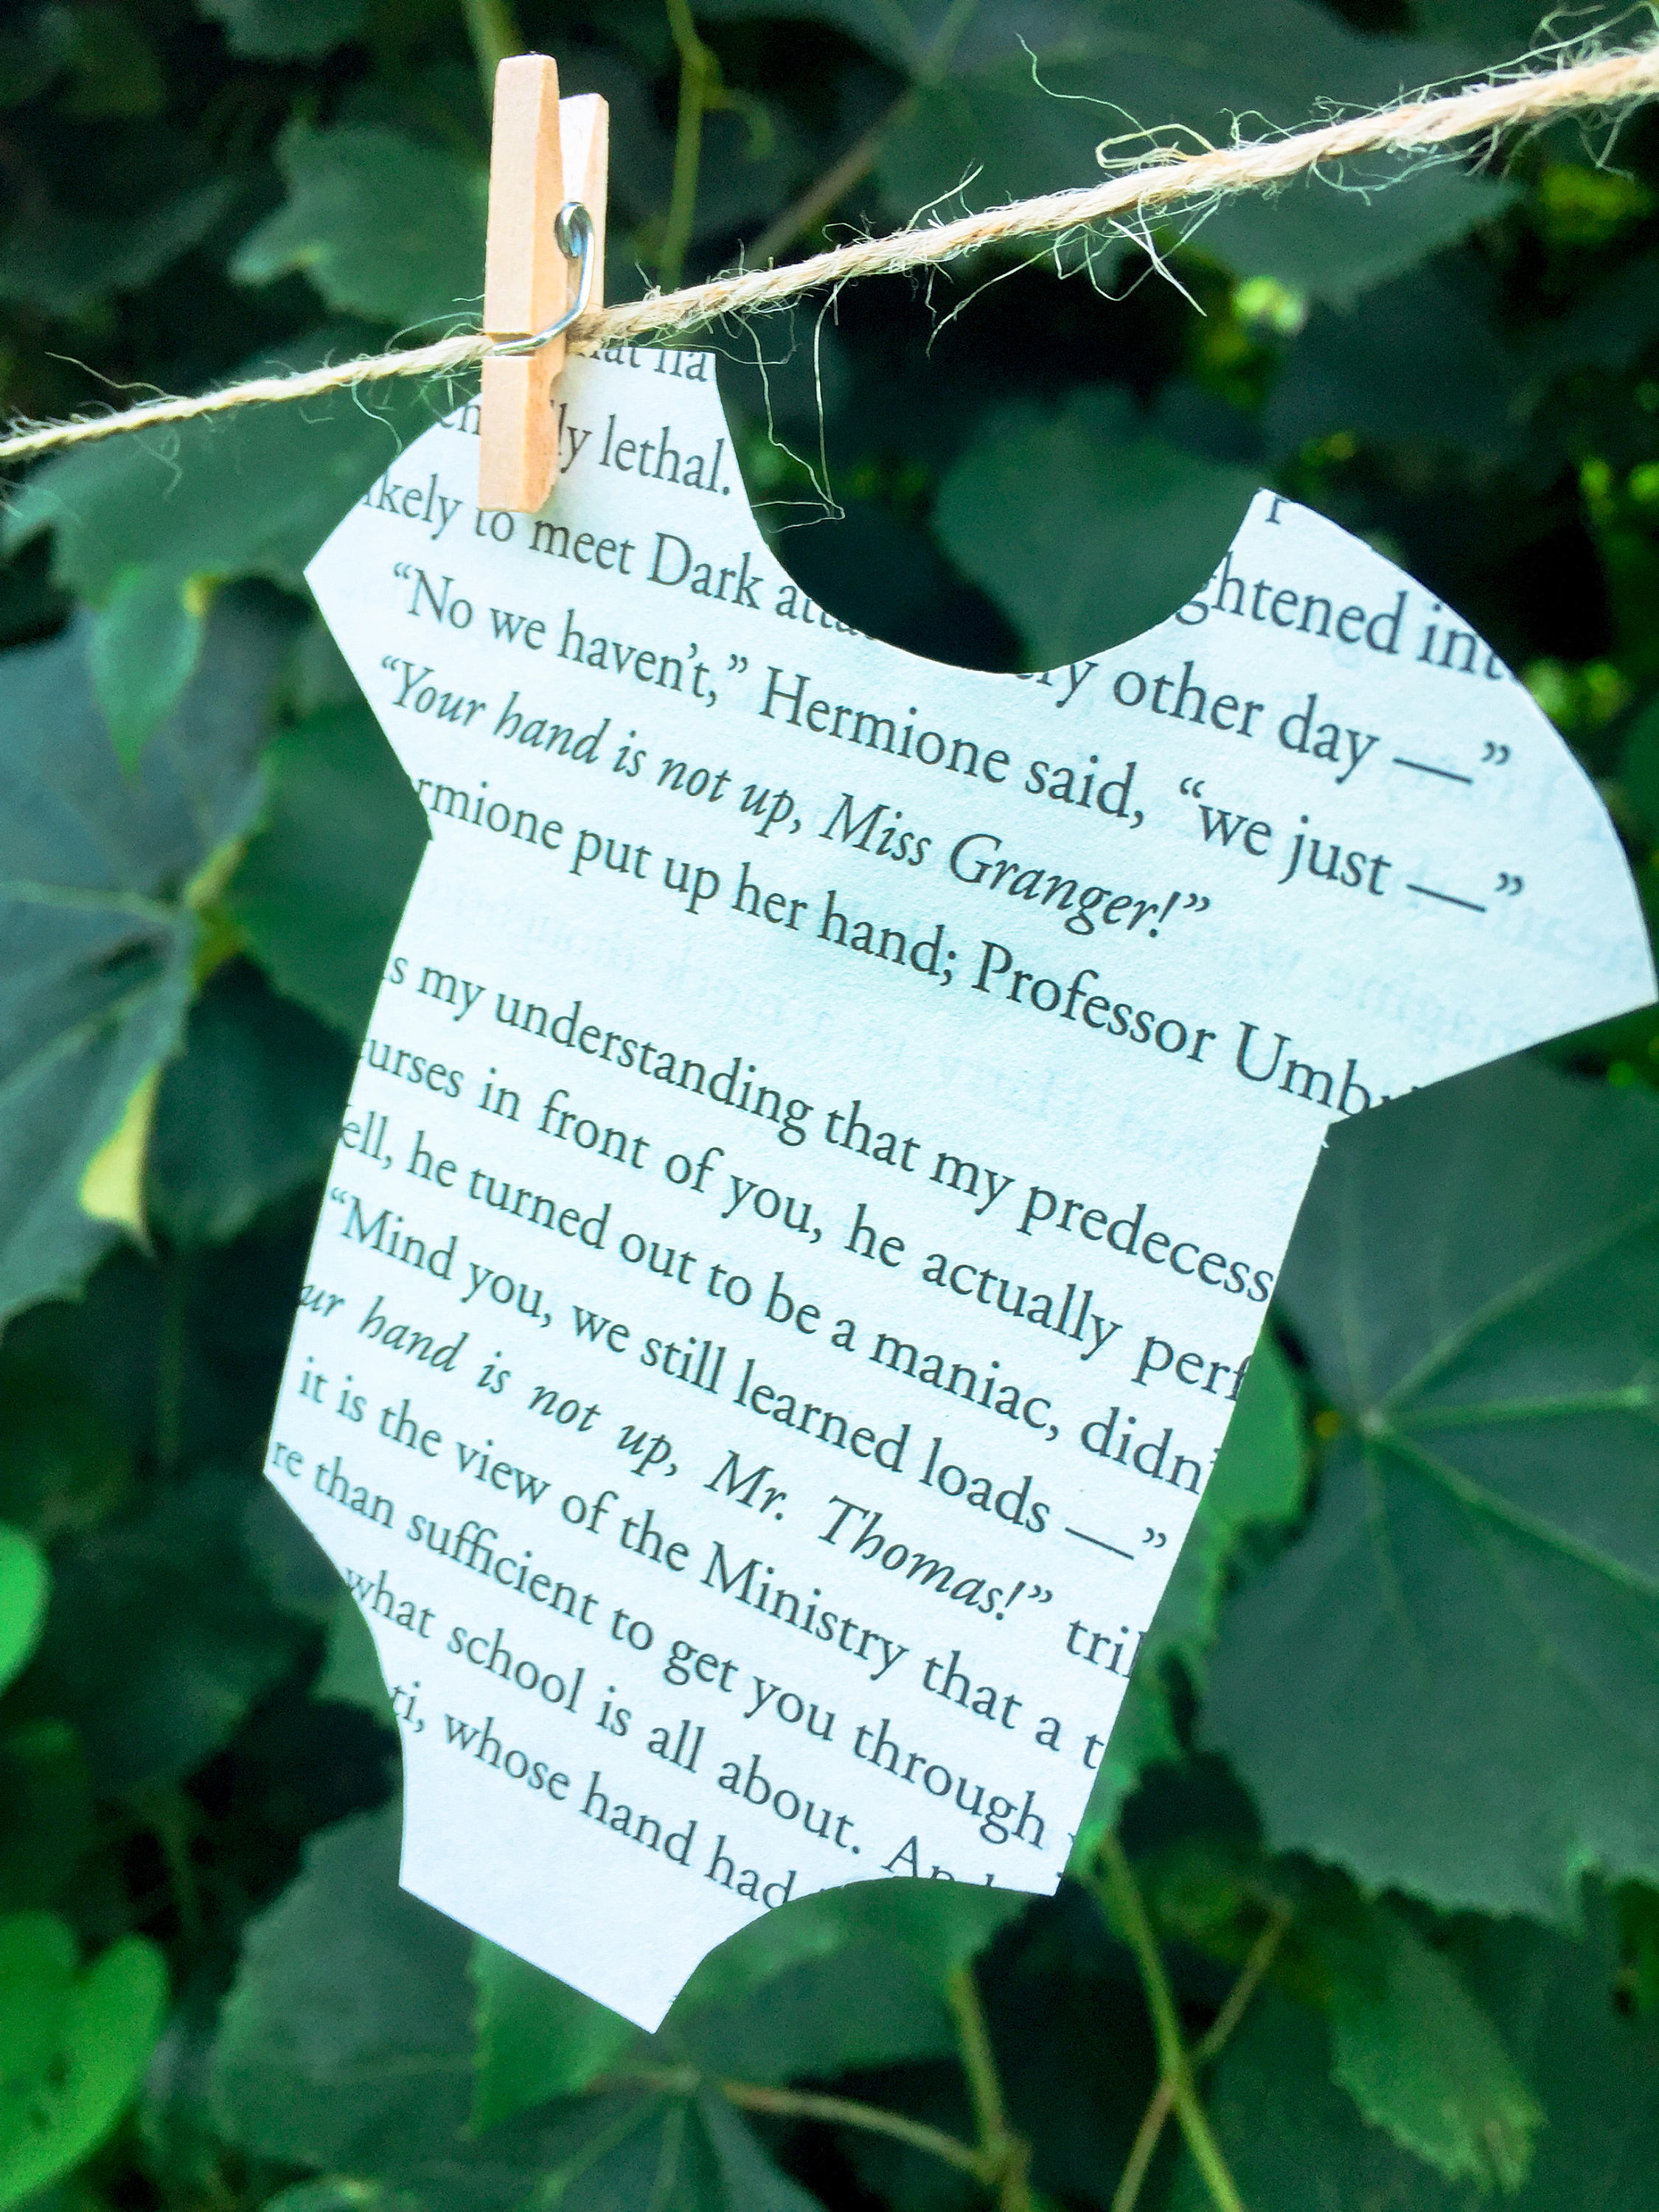 ly lethal.
to meet Dark
ghtened
other day —”
“No we haven’t,” Hermione said, “we just —”
“Your hand is not up, Miss Granger!”
rmione put up her hand; Professor Umb
s my understanding that my predecess
curses in front of you, he actually perf
ell, he turned out to be a maniac, didn’
“Mind you, we still learned loads —”
ur hand is not up, Mr. Thomas!” tril
it is the view of the Ministry that a t
re than sufficient to get you through
what school is all about. And
ti, whose hand had